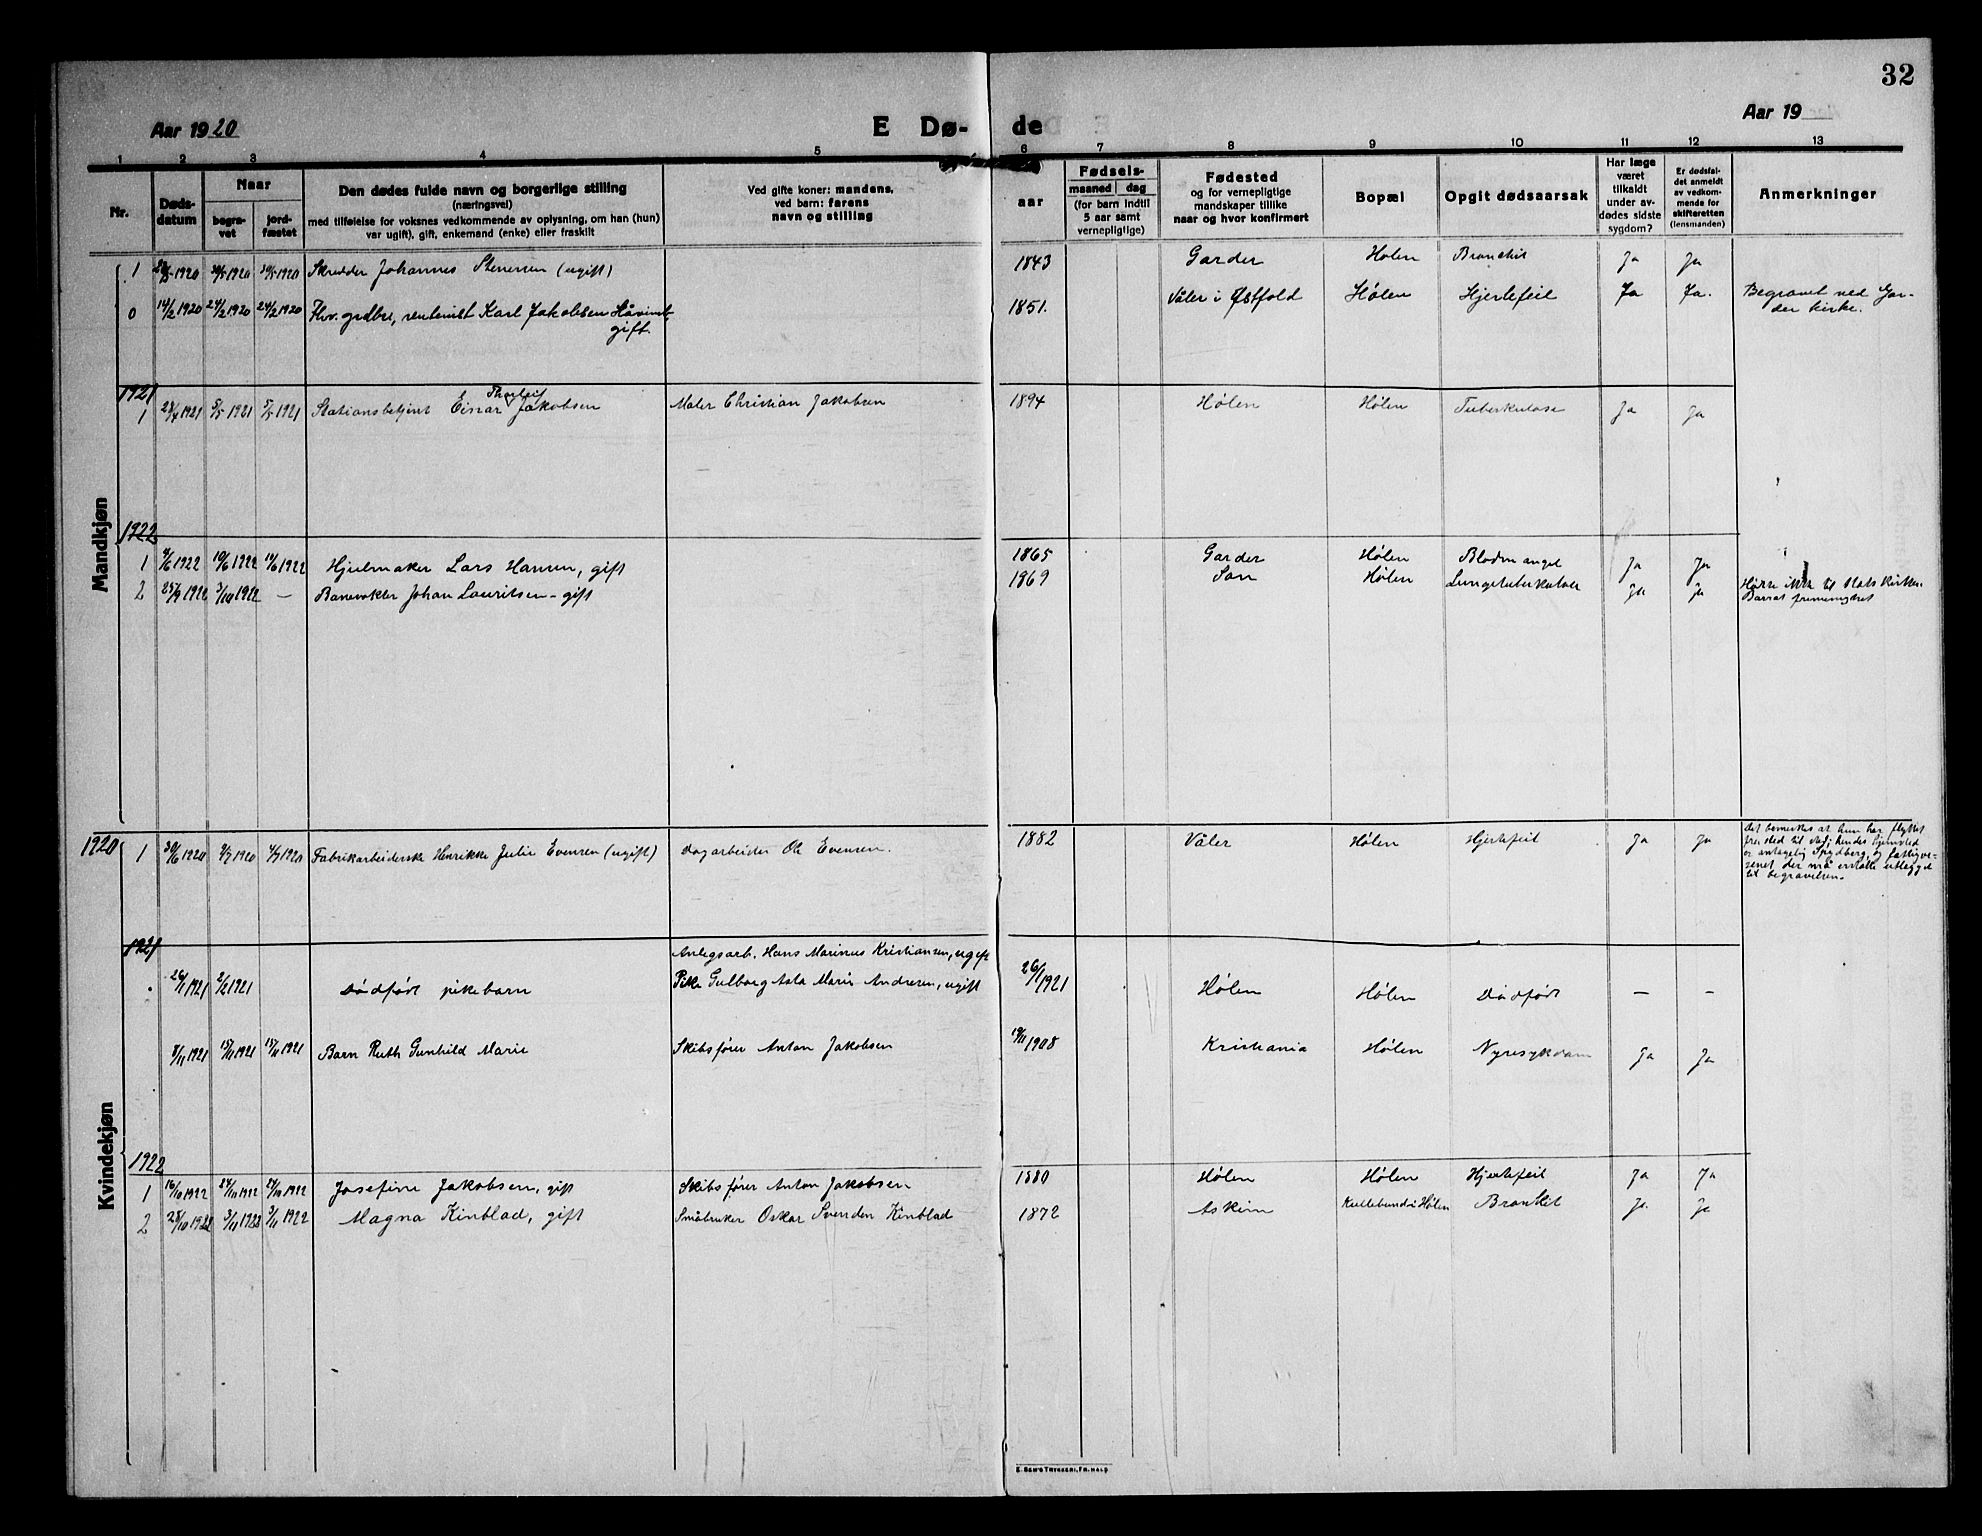 32
Aar 1920
E Dø-
de
Aar 19
1 2 3 4 5 6 7 8 9 10 11 12 13
Nr.
Døds-
datum
Naar
begra-
vet
jord-
fæstet
Den dødes fulde navn og borgerlige stilling
(næringsvei)
med tilføielse for voksnes vedkommende av oplysning, om han (hun)
var ugift), gift, enkemand (enke) eller fraskilt
Ved gifte koner: mandens,
ved børn: farens
navn og stilling
aar
Fødsels-
maaned dag
(for barn indtil
5 aar samt
vernepligtige)
Fødested
og for vernepligtige
mandskaper tillike
naar og hvor konfirmert
Bopæl
Opgit dødsaarsak
Har læge
været
tilkaldt
under av-
dødes sidste
sygdom?
Er dødsfal-
det anmeldt
av vedkom-
mende for
skifteretten
(lensmanden)
Anmerkninger
Mandkjøn
1 /5 1920 /5 1920 /5 1920 Skredder Johannes Stenersen (ugift) 1843 Garder Hølen Bronchit Ja Ja
0 14/2 1920 24/2 1920 24/2 1920 Fhv. grdbr., rentenist Karl Jakobsen 1851. Våler i Østfold Hølen Hjertefeil Ja Ja. Begravet ved Gar-
gift. der kirke.
1921
1 /4 1921 5/5 1921 5/5 1921 Stationsbetjent Einar Thorleif Jakobsen Maler Christian Jakobsen 1894 Hølen Hølen Tuberkulose Ja Ja
1922
1 /6 1922 10/6 1922 /6 1922 Hjulmaker Lars Hansen, gift 1865 Garder Hølen Blodmangel Ja Ja
2 25/9 1922 3/10 1922 — Banevokter Johan Lauritsen - gift 1869 Son Hølen Lungetuberkulose Ja Ja Hørte ikke til Statskirken.
Kvindekjøn
1920
1 30/6 1920 /7 1920 /7 1920 Fabrikarbeiderske Henrikke Julie Evensen (ugift) Dagarbeider Ole Evensen. 1882 Våler Hølen Hjertefeil Ja Ja Det bemerkes at hun har flyttet
fra sted til sted; hendes hjemsted
er antagelig Spydberg, og fattigve-
senet der må erstatte utlegget
til begravelsen.
1921
Anlegsarb. Hans Marinus Kristiansen, ugift
26/1 1921 2/2 1921 Dødfødt pikebarn Pike Gulborg Asta Marie Andresen, ugift 26/1 1921 Hølen Hølen Dødfødt — —
8/11 1921 15/11 1921 15/11 1921 Barn Ruth Gunhild Marie Skibsfører Anton Jakobsen 19/11 1908 Kristiania Hølen Nyresykdom Ja Ja
1922
1 16/10 1922 24/10 1922 24/10 1922 Josefine Jakobsen, gift Skibsfører Anton Jakobsen 1880 Hølen Hølen Hjertefeil Ja Ja
2 28/10 1922 3/11 1922 3/11 1922 Magna Kinblad, gift Småbruker Oskar Svenden Kinblad 1872 Askim i Hølen Bronkit Ja. Ja
E. SEM'S TRYKKERI, FR.HALD